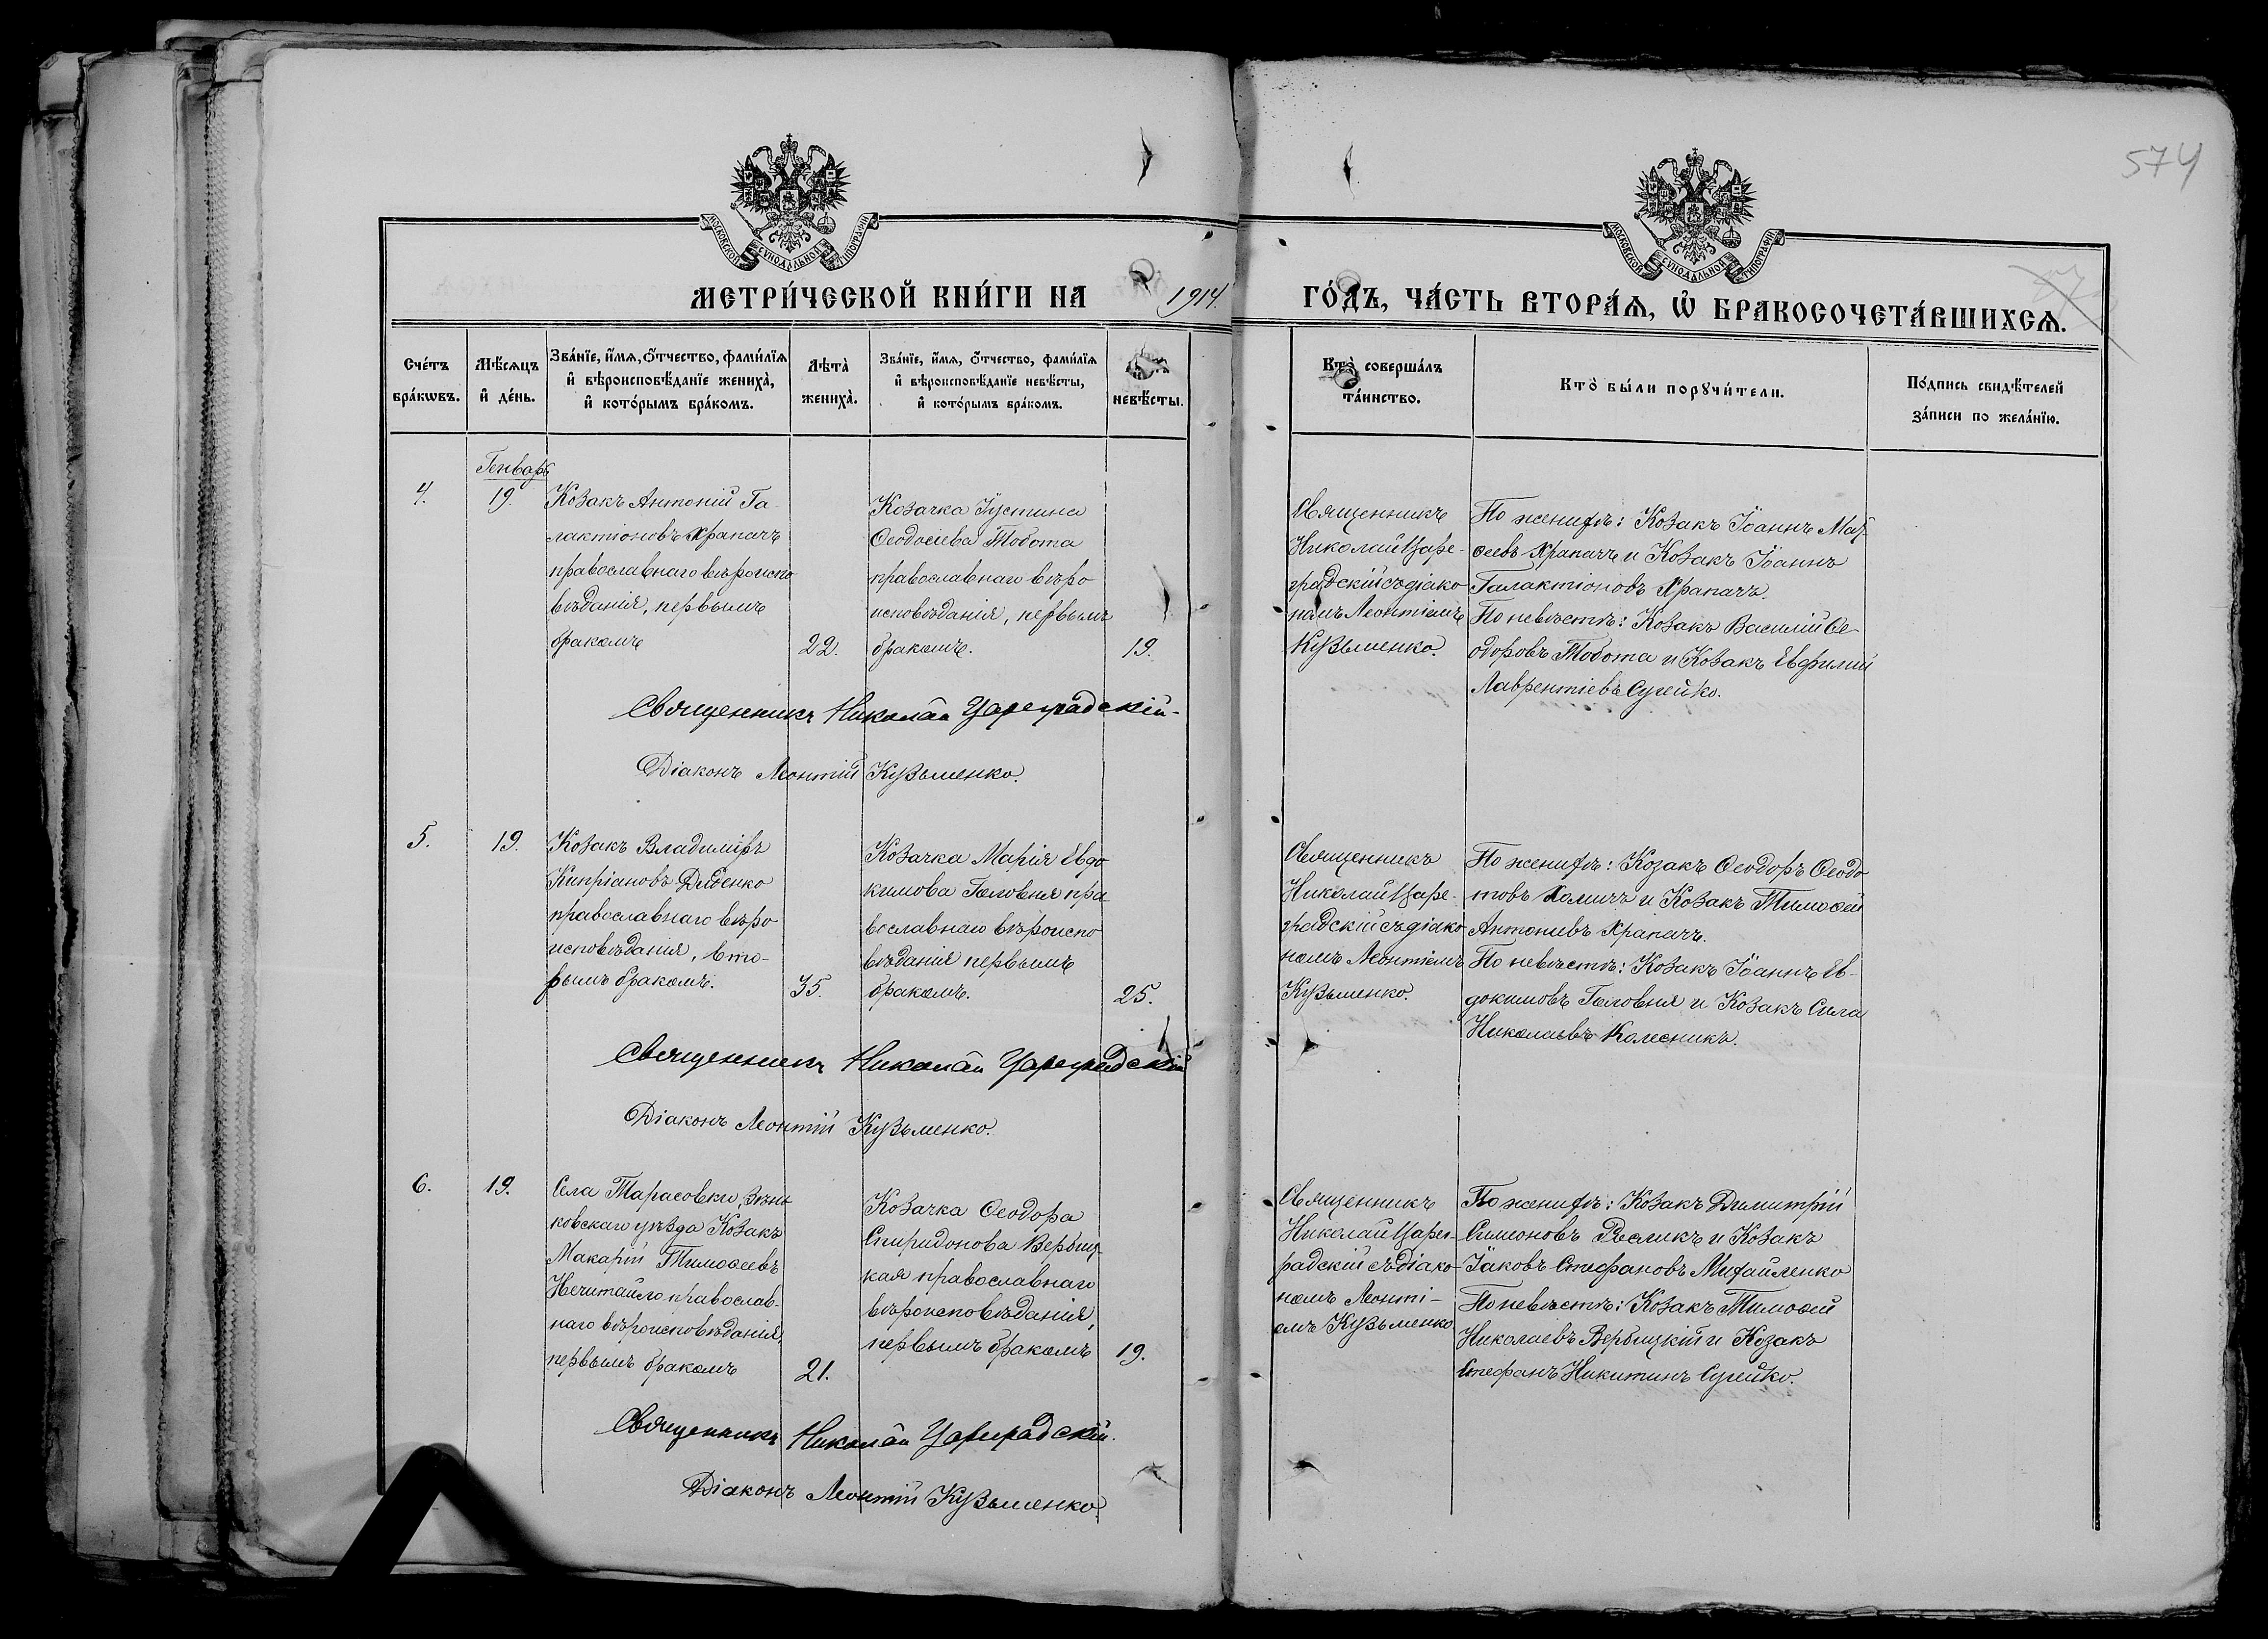 574
МОСКОВСКОЙ СѴНОДАЛЬНОЙ ТИПОГРАФІИ
МОСКОВСКОЙ СѴНОДАЛЬНОЙ ТИПОГРАФІИ
МЕТРИ́ЧЕСКОЙ КНИ́ГИ НА 1914.
ГО́ДЪ, ЧА́СТЬ ВТОРА́Ѧ, Ѡ҆ БРАКОСОЧЕТА́ВШИХСѦ.
Сче́тъ
бра́кѡвъ.
Мѣ́сѧцъ
и҆ де́нь.
Зва́нїе, и҆́мѧ, ѻ҆́тчество, фами́лїѧ
и҆ вѣроисповѣ́данїе жениха̀,
и҆ кото́рымъ бра́комъ.
Лѣта̀
жениха̀.
Зва́нїе, и҆́мѧ, ѻ҆́тчество, фами́лїѧ
и҆ вѣроисповѣ́данїе невѣ́сты,
и҆ кото́рымъ бра́комъ.
невѣ́сты.
Кто̀ соверша́лъ
та́инство.
Кто̀ бы́ли порꙋчи́тели.
По́дпись свидѣ́телей
за́писи по жела́нїю.
Генварь
4.
19.
Козакъ Антоній Га-
лактіоновъ Храпачъ
православнаго вѣроиспо
вѣданія, первымъ
бракомъ
22.
Козачка Іустина
Ѳеодосіева Тобота
православнаго вѣро
исповѣданія, первымъ
бракомъ.
19.
Священникъ
Николай Царе-
градскій съ діако
номъ Леонтіемъ
Кузьменко.
По женихѣ: Козакъ Іоаннъ Мат
ѳеевъ Храпачъ и Козакъ Іоаннъ
Галактіоновъ Храпачъ
По невѣстѣ: Козакъ Василій Ѳе-
одоровъ Тобота и Козакъ Евфимій
Лаврентіевъ Сугейко.
Священникъ Николай Цареградскій-
Діаконъ Леонтій Кузьменко.
5.
19.
Козакъ Владиміръ
Кипріановъ Дяденко
православнаго вѣро
исповѣданія, вто-
рымъ бракомъ.
35.
Козачка Марія Евдо
кимова Головня пра
вославнаго вѣроиспо
вѣданія первымъ
бракомъ.
25.
Священникъ
Николай Царе-
градскій съ діако
номъ Леонтіемъ
Кузьменко.
По женихѣ: Козакъ Ѳеодоръ Ѳеодо
товъ Хомичъ и Козакъ Тимоѳей
Антоніевъ Храпачъ.
По невѣстѣ: Козакъ Іоаннъ Ев-
докимовъ Головня и Козакъ Сила
Николаевъ Колесникъ.
Священникъ Николай Цареградскій
Діаконъ Леонтій Кузьменко.
6.
19.
Села Тарасовки, Зѣнь
ковскаго уѣзда Козакъ
Макарій Тимоѳеевъ
Нечитайло православ-
наго вѣроисповѣданія,
первымъ бракомъ
21.
Козачка Ѳеодора
Спиридонова Вербиц-
кая православнаго
вѣроисповѣданія,
первымъ бракомъ
19.
Священникъ
Николай Царег-
радскій съ діако
номъ Леонті-
емъ Кузьменко
По женихѣ: Козакъ Димитрій
Симоновъ Великъ и Козакъ
Іаковъ Стефановъ Михайленко
По невѣстѣ: Козакъ Тимоѳей
Николаевъ Вербицкій и Козакъ
Стефанъ Никитинъ Сугейко.
Священникъ Николай Цареградскій.
Діаконъ Леонтій Кузьменко.